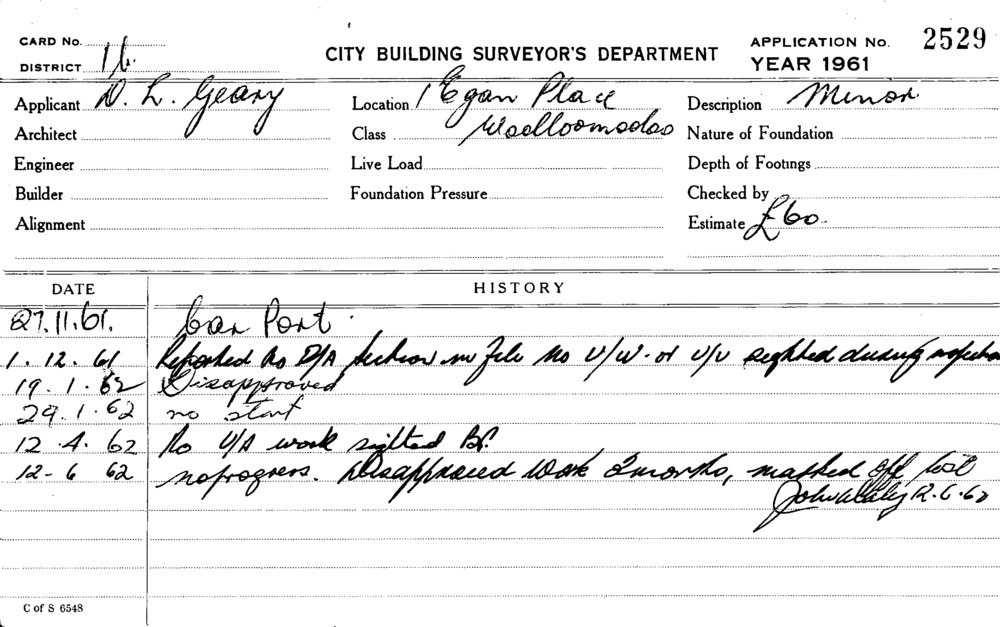 CARD No.
DISTRICT 16.
CITY BUILDING SURVEYOR'S DEPARTMENT
APPLICATION No. 2529
YEAR 1961
Applicant D. L. Geary
Location 1 Egan Place
Description Minor
Architect
Class Woolloomooloo
Nature of Foundation
Engineer
Live Load
Depth of Footings
Builder
Foundation Pressure
Checked by
Alignment
Estimate £60
DATE HISTORY
27.11.61. Car Port.
1.12.61 Reported no D/A Section on file no U/W. or U/U sighted during inspection
19.1.62 Disapproved
29.1.62 no start
12.4.62 No U/A work sighted
12-6 62 no progress. Disapproved work 2 months, marked off list
12.6.62
C of S 6548